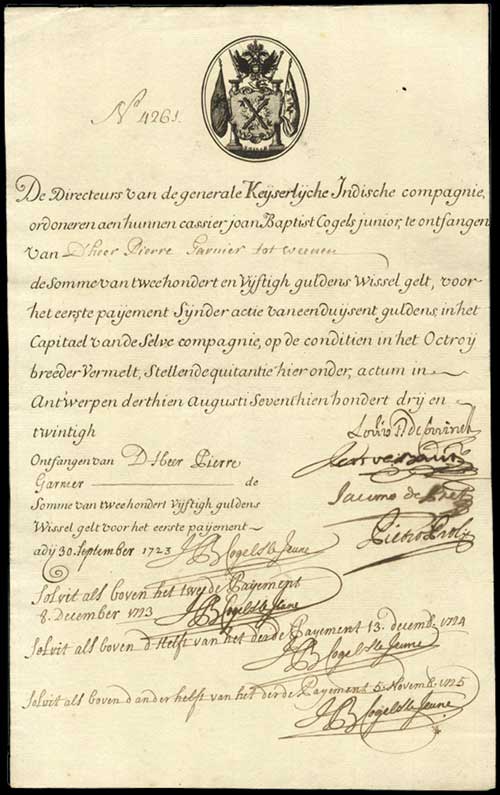 No. 4261.
De Directeurs van de generale Keÿserlÿche Indische compagnie,
ordoneren aen hunnen cassier joan Baptist Cogels junior, te ontfangen
van D'heer Pierre Garnier tot weenen
de Somme van tweehondert en Vÿftigh guldens Wissel gelt, voor
het eerste payement Sÿnder actie van eenduÿsent guldens, in het
Capitael van de Selve compagnie, op de conditien in het Octroÿ
breeder Vermelt, Stellende quitantie hier onder, actum in
Antwerpen derthien Augusti Seventhien hondert drÿ en
twintigh
Ontfangen van D Heer Pierre
Garnier de
Somme van tweehondert Vÿftigh guldens
Wissel gelt voor het eerste payement
adÿ 30. September 1723 JB Cogels le Jeune
Jacomo de Pret
Pietro Proli
Solvit als boven het tweede Payement
8. december 1723 JB Cogels le Jeune
Solvit als boven d'Helft van het derde Payement 13. decemb. 1724
JB Cogels le Jeune
Solvit als boven d'ander helft van het derde Payement 5. Novemb. 1725
JB Cogels le Jeune